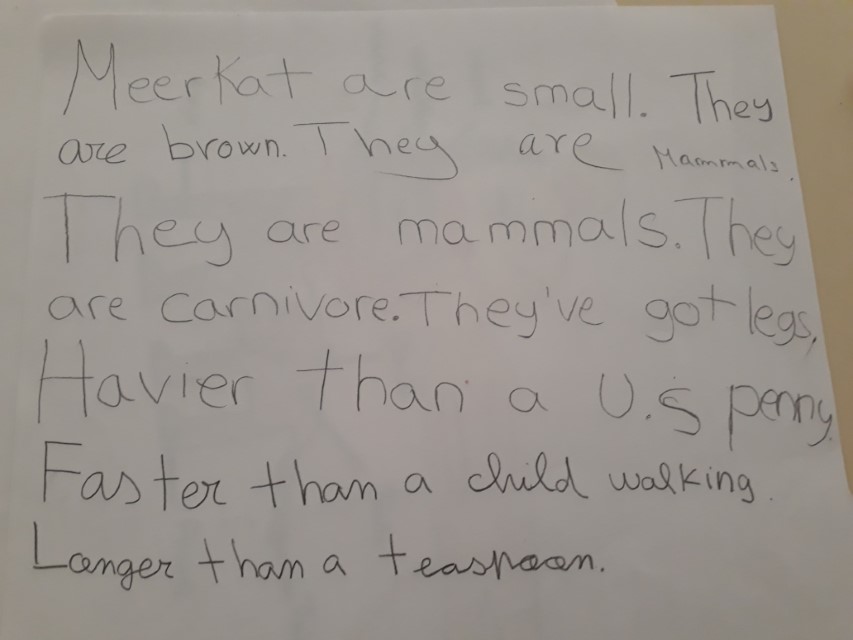 Meerkat are small. They
are brown. They are Mammals.
They are mammals. They
are carnivore. They've got legs,
Havier than a U.S penny.
Faster than a child walking.
Longer than a teaspoon.